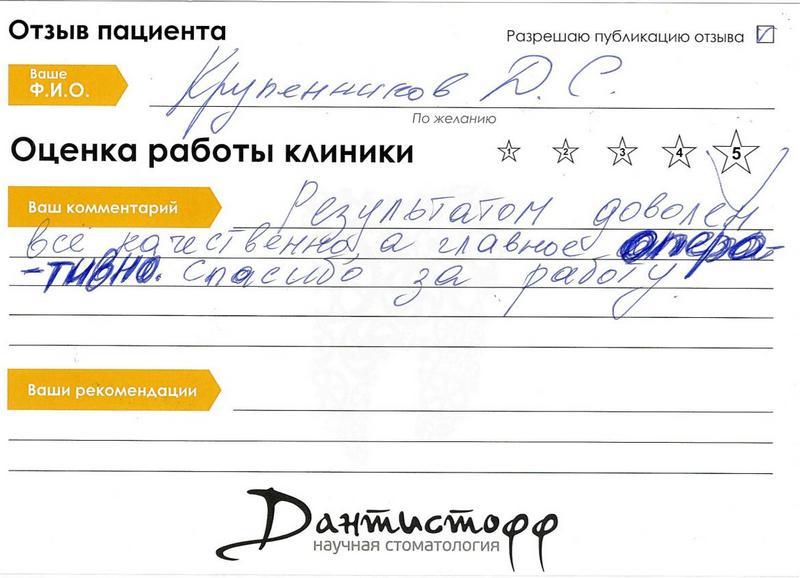 Отзыв пациента
Разрешаю публикацию отзыва
Ваше
Ф.И.О.
Крупенников Д. С.
По желанию
Оценка работы клиники
1 2 3 4 5
Ваш комментарий
Результатом доволен
всё качественно, а главное опера-
-тивно. Спасибо за работу.
Ваши рекомендации
Дантистофф
научная стоматология